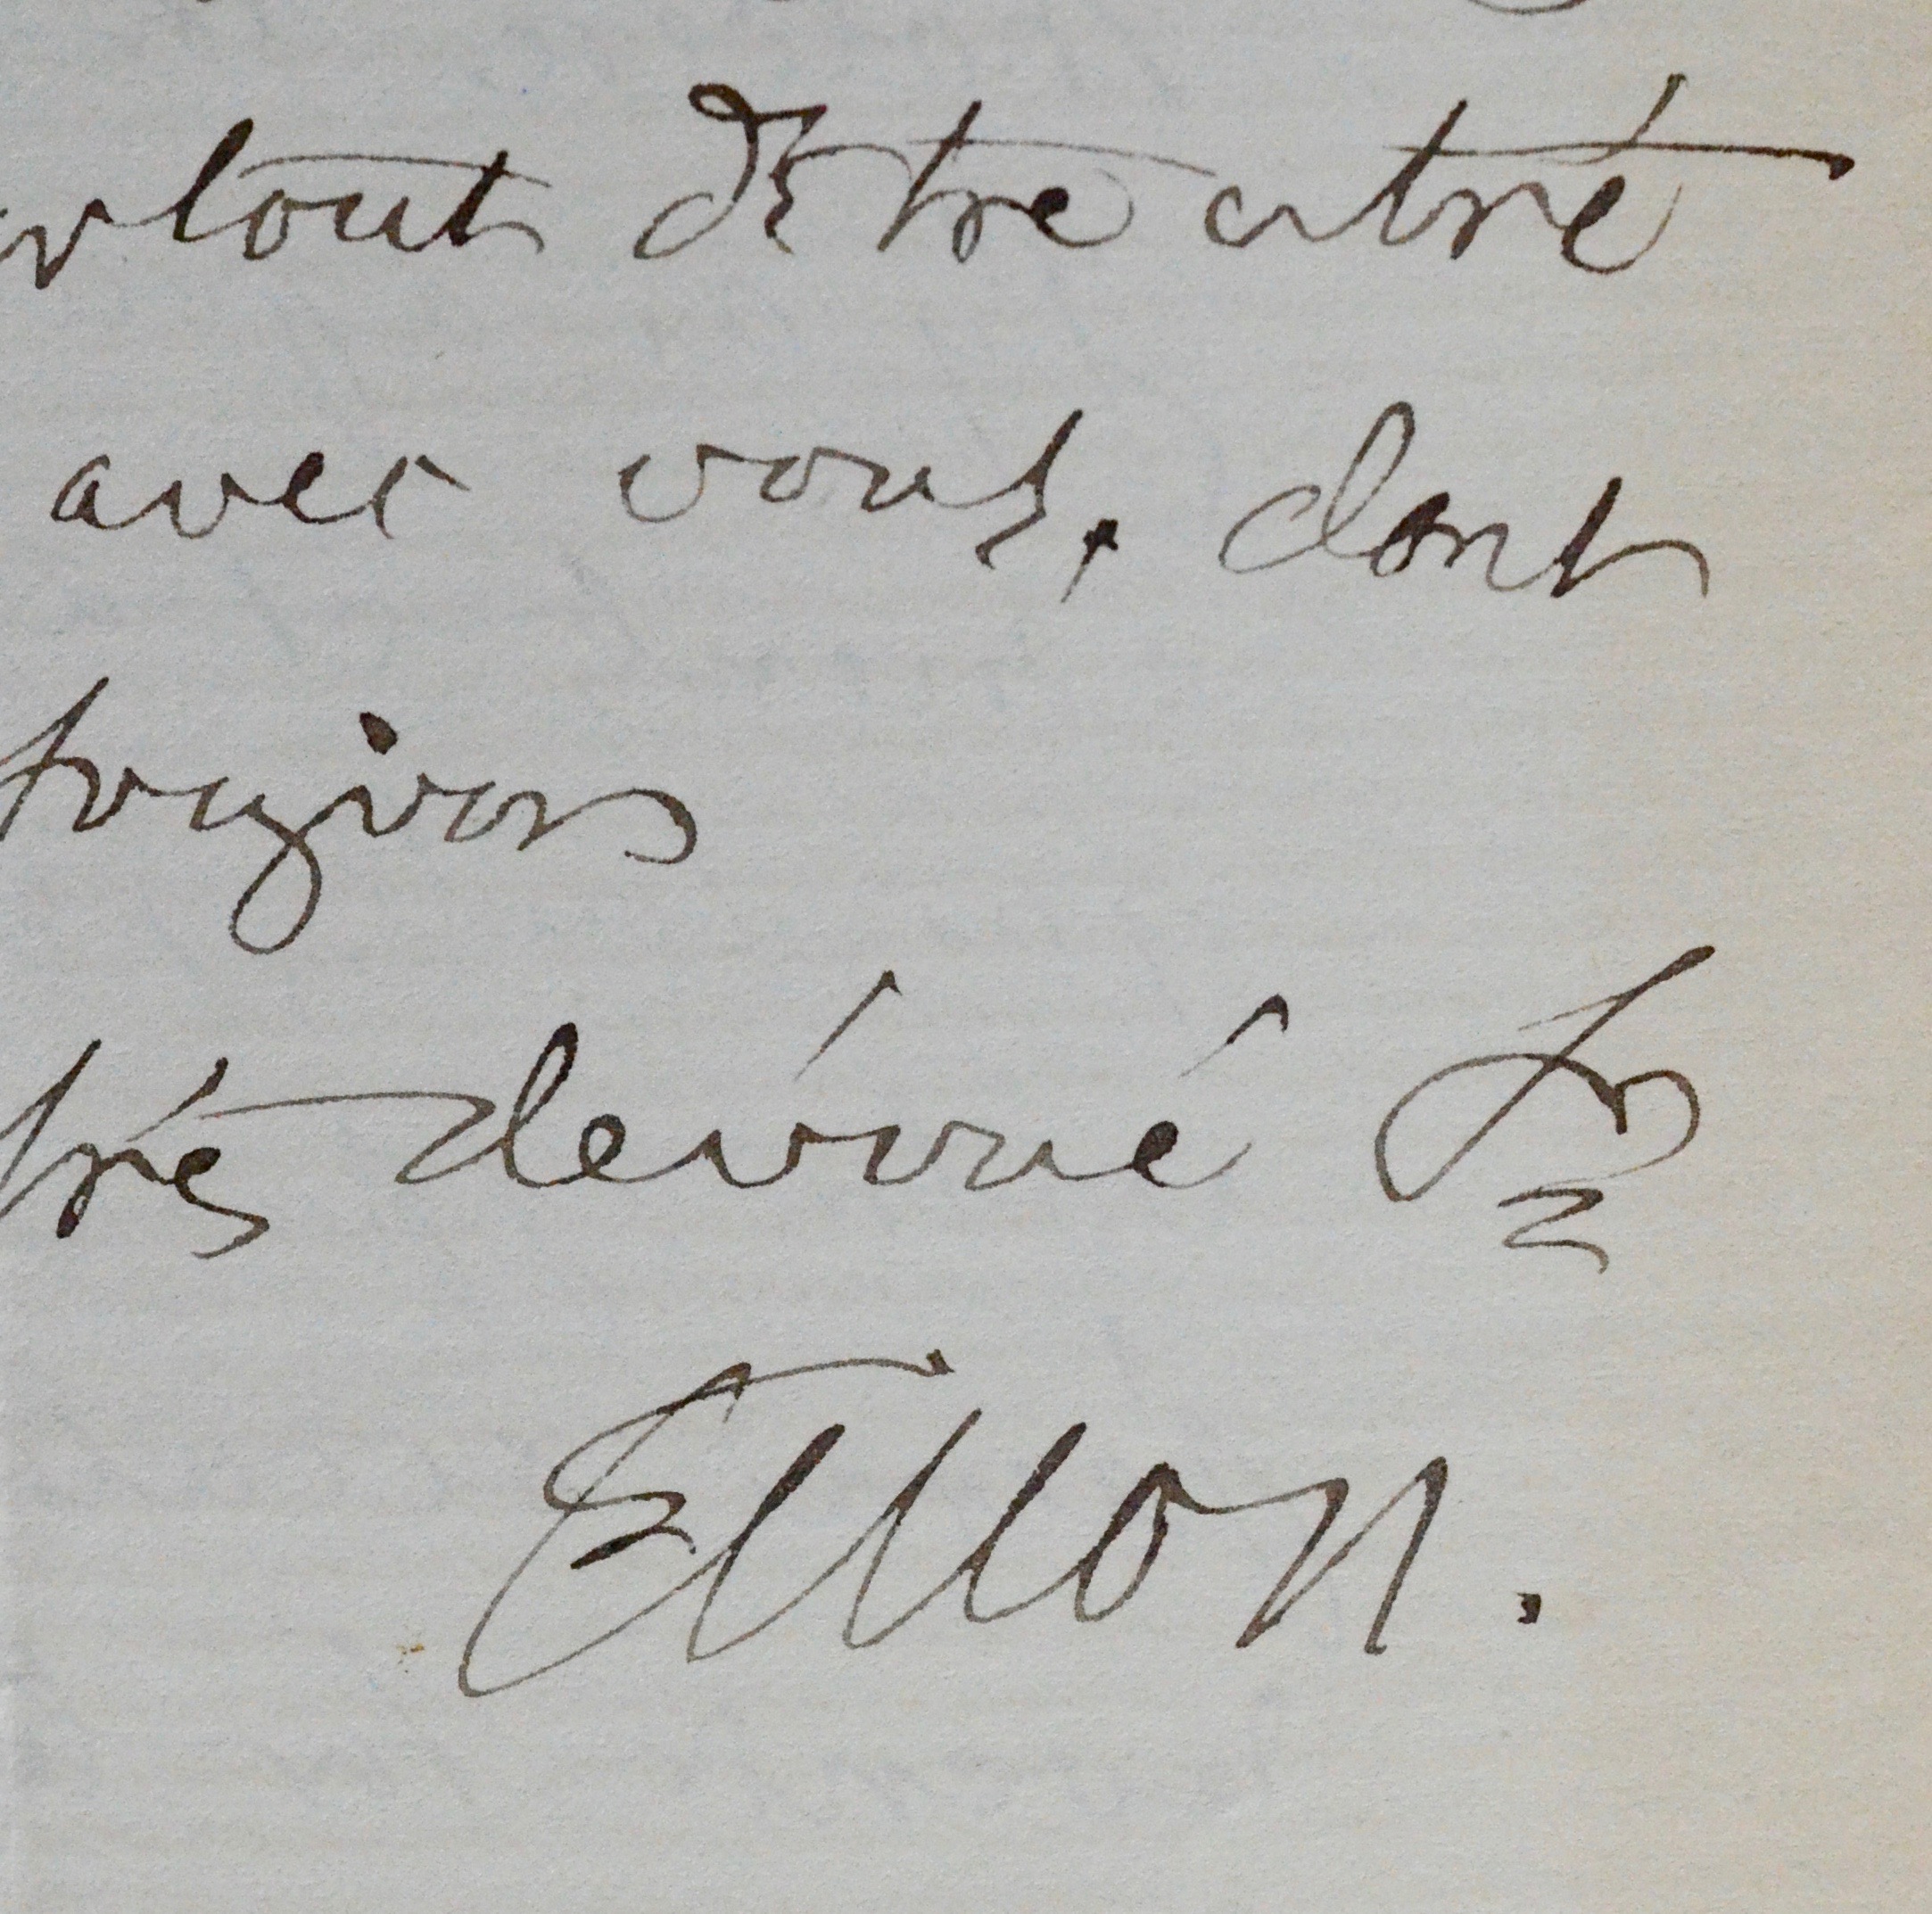 surtout d'être entré
avec vous, dont
toujours
très dévoué